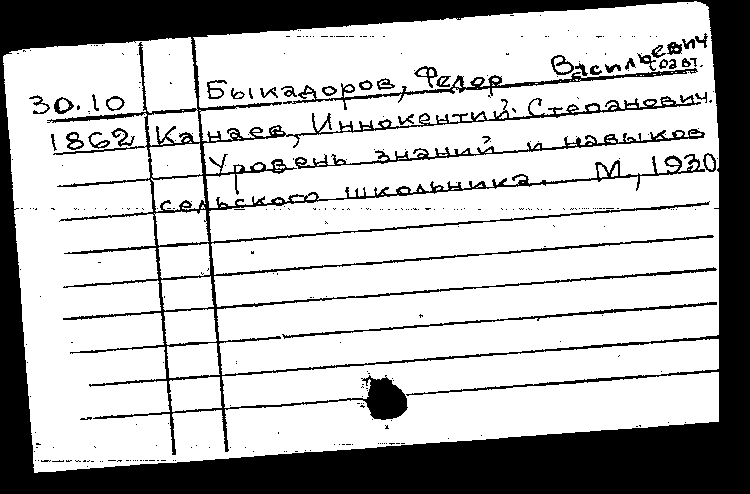 30.10 Быкадоров, Федор Васильевич
соавт.
1862 Канаев, Иннокентий Степанович.
Уровень знаний и навыков
сельского школьника. М., 1930.